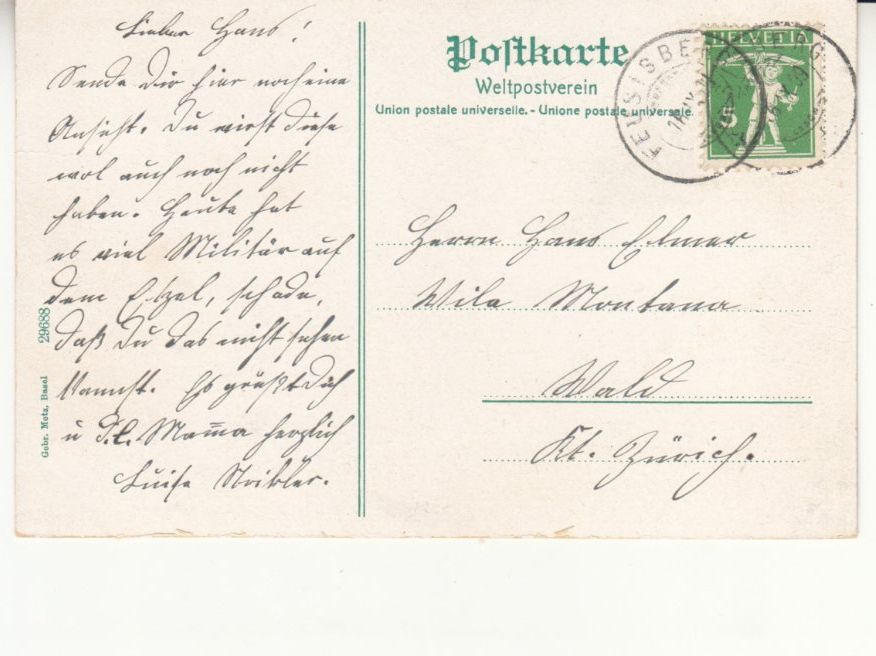 Lieber Hans!
Sende dir hier noch eine
Ansicht. Du wirst diese
wol auch noch nicht
haben. Heute hat
es viel Militär auf
dem Etzel, schade,
daß Du das nicht sehen
kannst. Es grüßt Dich
u d. l. Mama herzlich
Luise Strickler.
Gebr. Metz, Basel 29688
Postkarte
Weltpostverein
Union postale universelle. - Unione postale universale.
FEUSISBERG
HELVETIA
5
Herrn Hans Elmer
Villa Montana
Wald
Kt. Zürich.